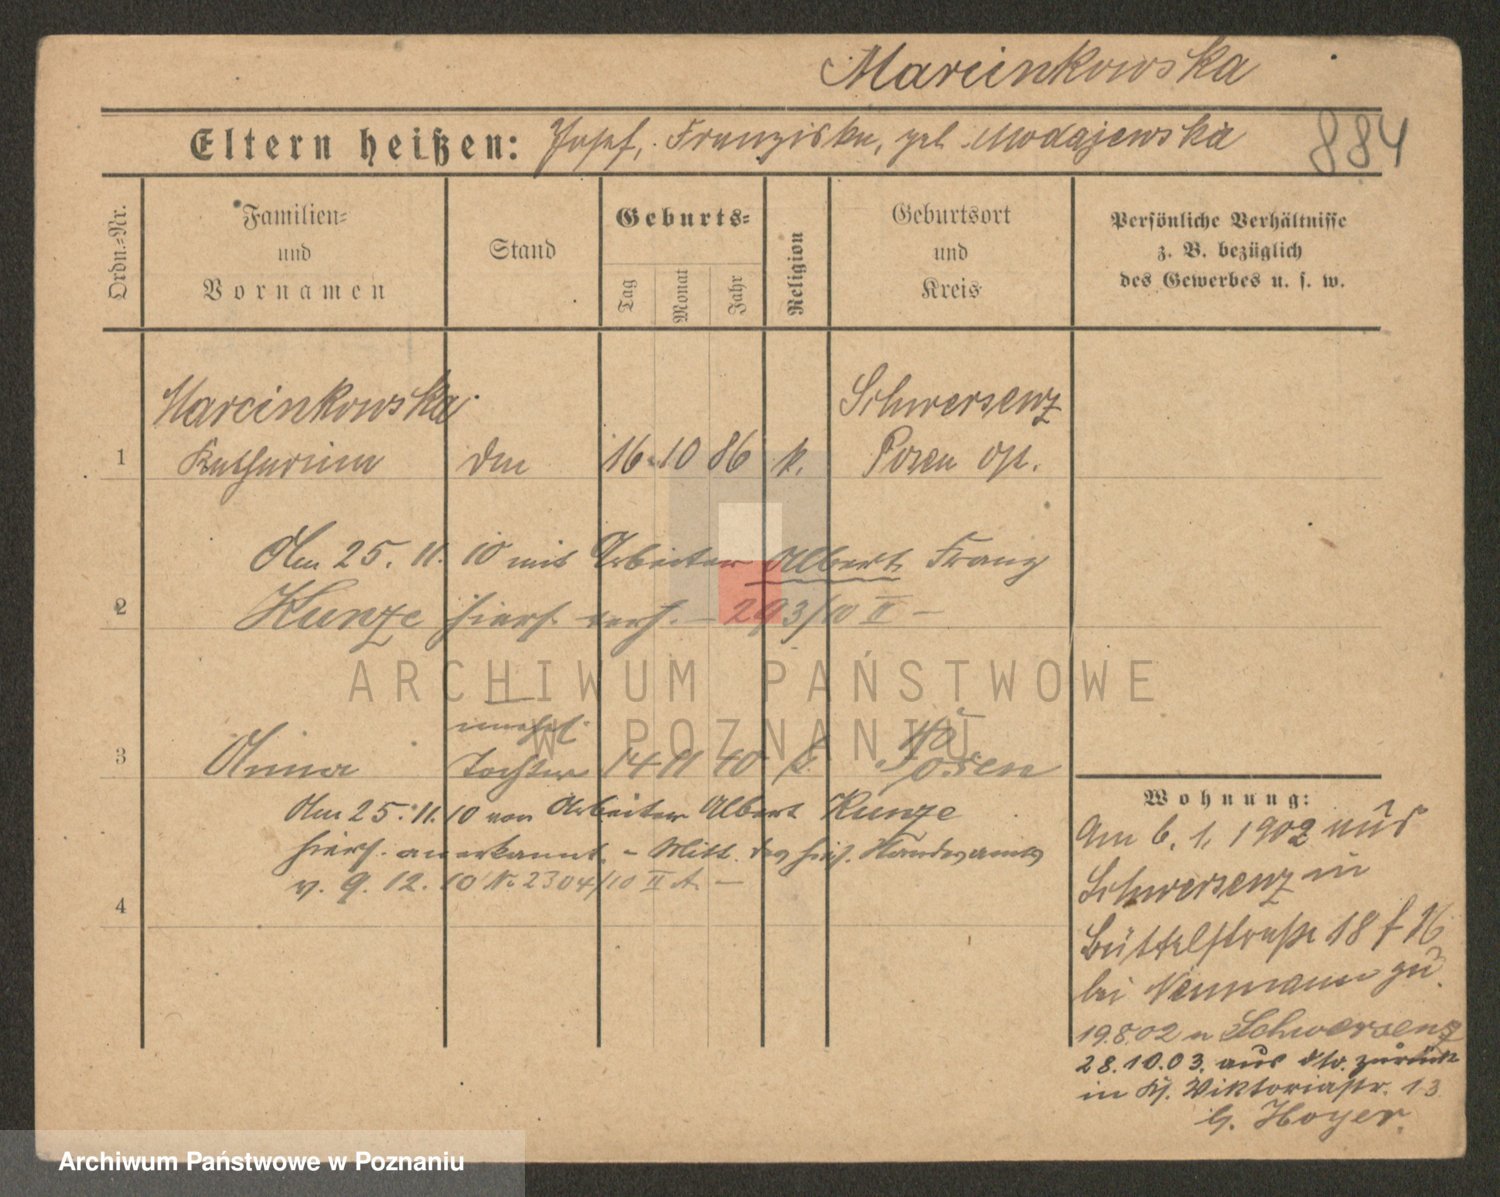 Marcinkowska
Eltern heißen: Josef, Franziska, geb. Modajewska
884
Ordn.-Nr.
Familien-
und
Vornamen
Stand
Geburts-
Tag
Monat
Jahr
Religion
Geburtsort
und
Kreis
Persönliche Verhältnisse
z. B. bezüglich
des Gewerbes u. s. w.
Marcinkowska
Schwersenz
1 Katharina 16 10 86 k. Posen
Am 25. 11. 10 mit Arbeiter Albert Franz
2 Kunze hiers. verh. – 293/10 II –
unehel.
3 Anna Tochter 14 11 10 k. Posen
Am 25. 11. 10 von Arbeiter Albert Kunze
hiers. anerkannt – Mitt. des hies. Standesamts
v. 9. 12. 10 No 2304/10 II A. –
4
Wohnung:
Am 6. 1. 1902 aus
Schwersenz in
Büttelstraße 18
bei Neumann zu.
19.8.02 n Schwersenz
28.10.03. aus dto. zurück
in Viktoriastr. 13
b. Hoyer.
ARCHIWUM PAŃSTWOWE
W POZNANIU
Archiwum Państwowe w Poznaniu